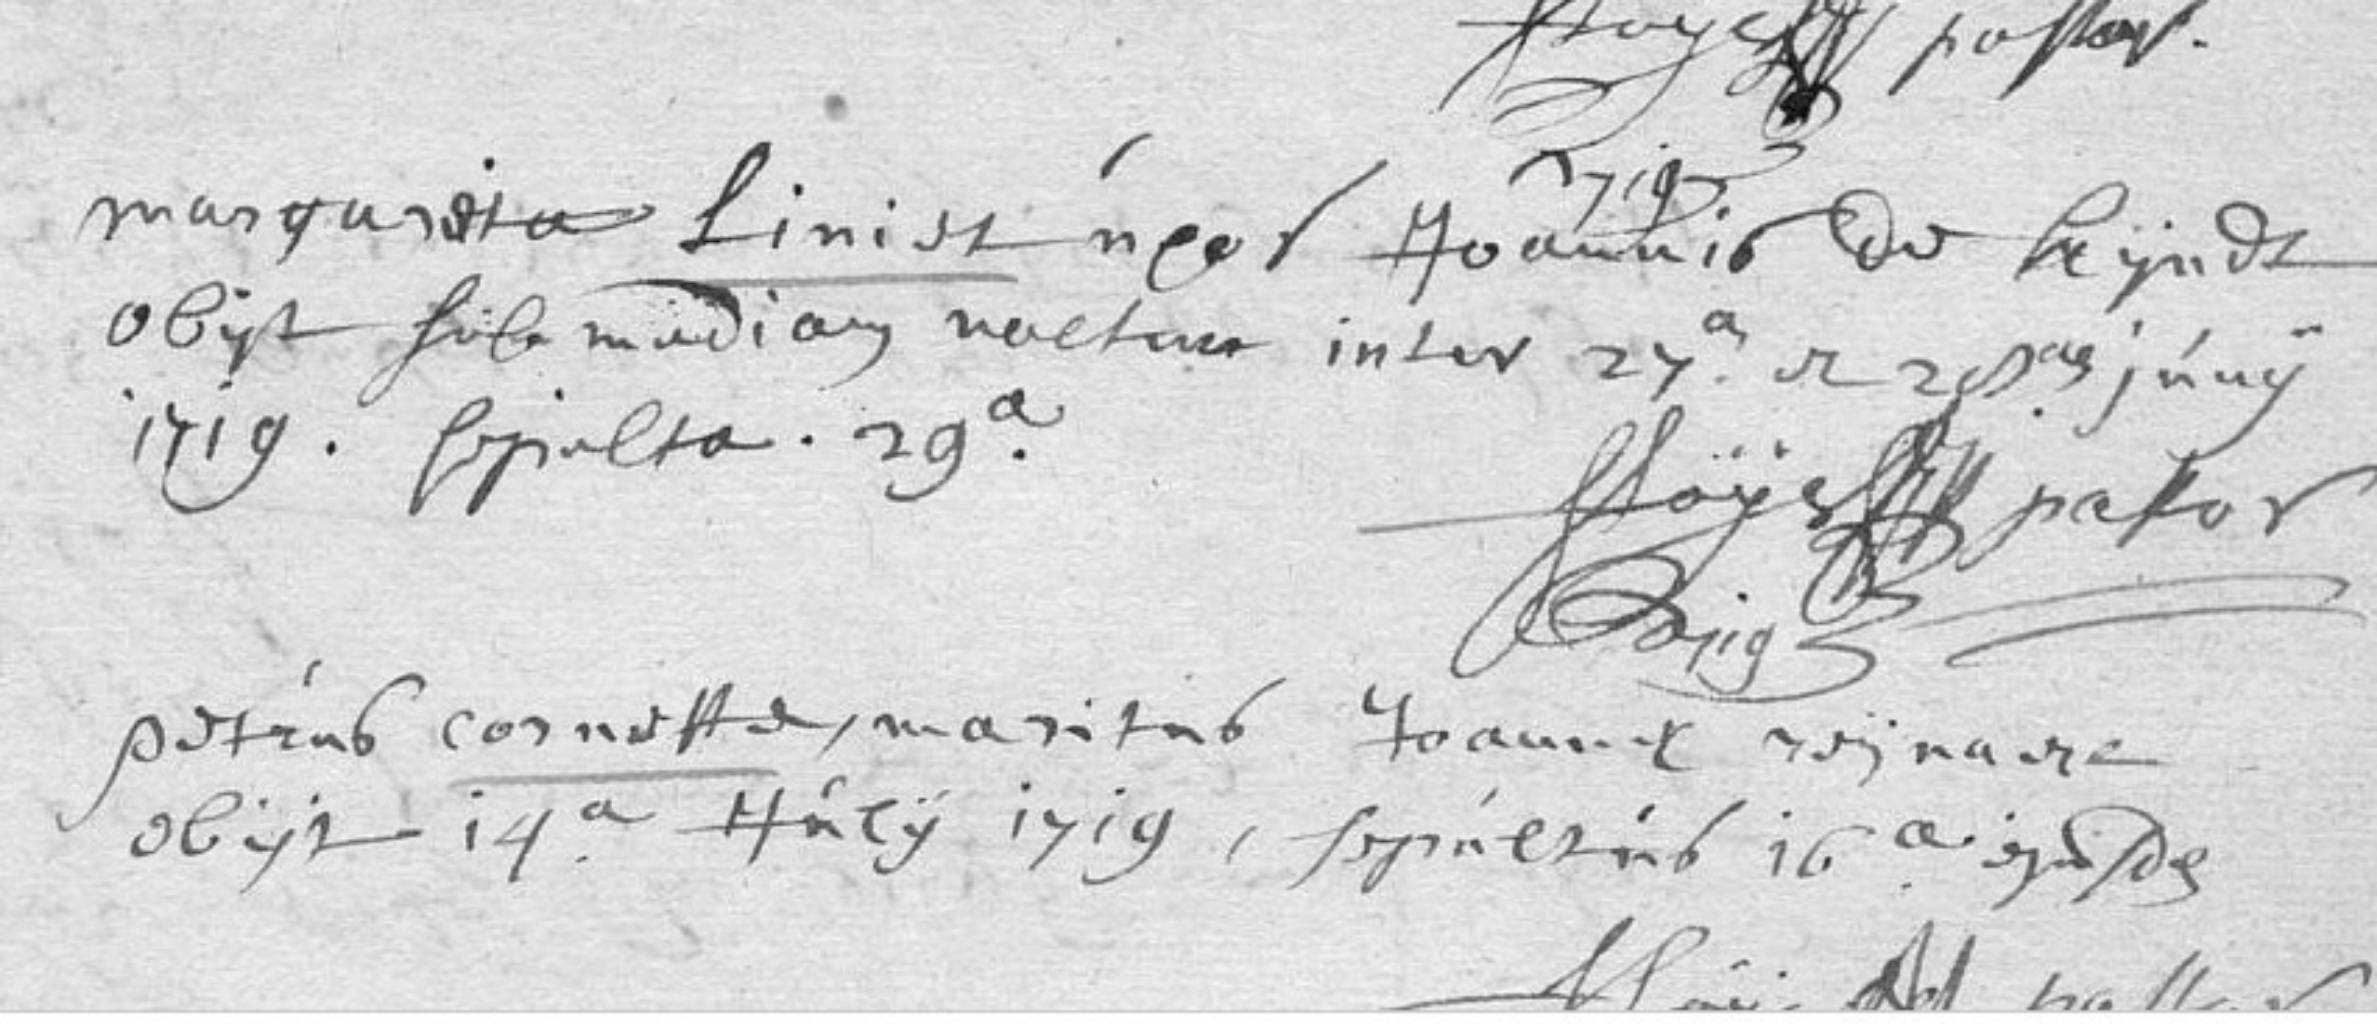 pastor.
1719.
margareta Liniet úxor Joannis De kÿndt
obÿt sub mediam noctem inter 27.a et 28am júnÿ
1719. sepulta. 29.a
pastor
1719
petrús cornette, maritus Joannæ reÿnaert
obÿt 14.a Júlÿ 1719, sepúltús 16.a ejusde
pastor